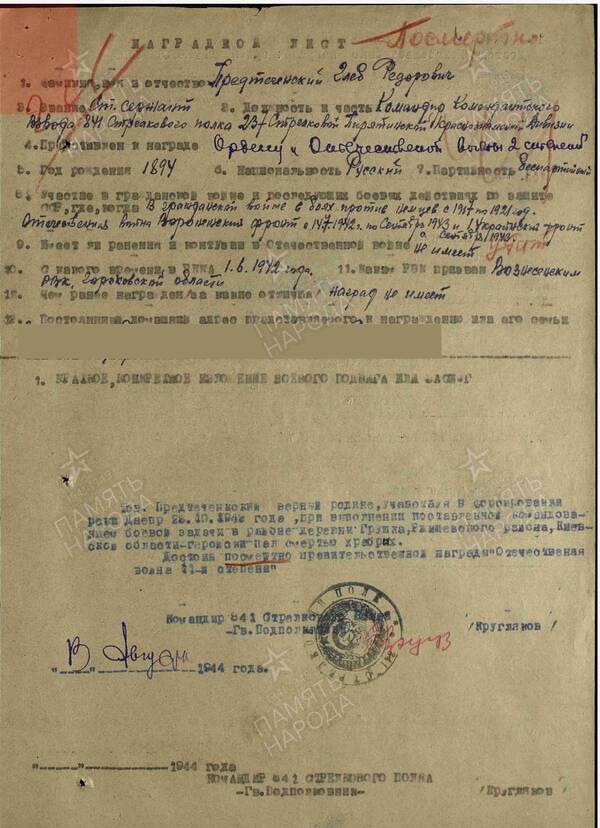 НАГРАДНОЙ ЛИСТ Посмертно
1. Фамилия, имя и отчество Предтеченский Глеб Федорович
2. Звание Ст. сержант 3. Должность и часть Командир Комендантского
взвода 841 Стрелкового полка 237 Стрелковой Пирятинской Краснознамен. дивизии
4. Представлен к награде Орденом Отечественной Войны 2 степени
5. Год рождения 1894 6. Национальность Русский 7. Партийность беспартийный
8. Участие в гражданской войне и последующих боевых действиях по защите
СССР, где, когда В гражданской войне в боях против немцев с 1917 по 1921 год.
Отечественная война Воронежский фронт с 1942 г. по Сентябрь 1943 и Украинский фронт
с Сентября 1943 г.
9. Имеет ли ранения и контузии в Отечественной войне не имеет убит
10. С какого времени в РККА 1.6.1942 года. 11. Каким РВК призван Вознесенским
РВК, Горьковской области
12. Чем ранее награжден/за какие отличия наград не имеет
Постоянный домашний адрес представляемого к награждению или его семьи
1. КРАТКОЕ, КОНКРЕТНОЕ ИЗЛОЖЕНИЕ БОЕВОГО ПОДВИГА ИЛИ ЗАСЛУГ
Тов. Предтеченский верный родине, участвуя в форсировании
реки Днепр 25.10. года, при выполнении поставленной командова-
нием боевой задачи в районе деревни Ржищевского района, Киев-
ской области-геройски пал смертью храбрых.
Достоин посмертно правительственной награды "Отечественная
война 11-й степени"
Командир 841 Стрелкового полка
-Гв.Подполковник- /Кругляков/
"В" Август 1944 года.
"-----"-----1944 года
КОМАНДИР 841 СТРЕЛКОВОГО ПОЛКА
-Гв.Подполковник- /Кругляков/
ПАМЯТЬ НАРОДА